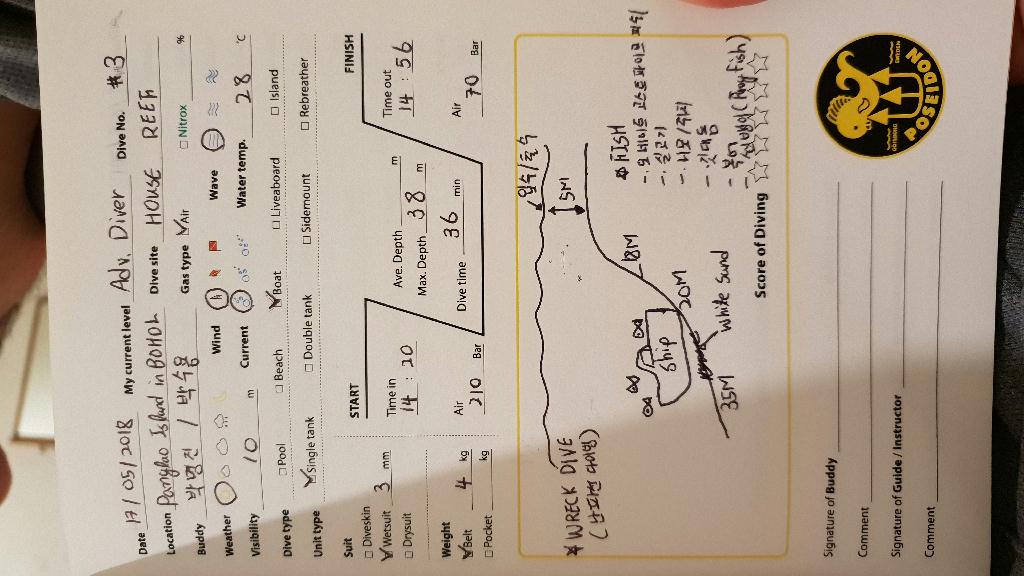 Date 17/05/2018 My current level Adv. Diver Dive No. #3
Location Panglao Island in BOHOL Dive site HOUSE REEF
Buddy 박명진 / 박수용 Gas type Air Nitrox %
Weather Wind Wave
Visibility 10 m Current Water temp. 28 °C
Dive type Pool Beach Boat Liveaboard Island
Unit type Single tank Double tank Sidemount Rebreather
Suit
Diveskin
Wetsuit 3 mm
Drysuit
Weight
Belt 4 kg
Pocket kg
START
Time in
14 : 20
Air
210 Bar
Ave. Depth m
Max. Depth 38 m
Dive time 36 min
FINISH
Time out
14 : 56
Air
70 Bar
* WRECK DIVE
(난파선 다이빙)
입수/출수
5M
18M
Ship
20M
35M
White Sand
* FISH
-. 고스트파이프 피쉬
-. 니모/
- 복어
(Frog Fish)
Score of Diving
POSEIDON
GÖTEBORG SWEDEN
Signature of Buddy
Comment
Signature of Guide / Instructor
Comment